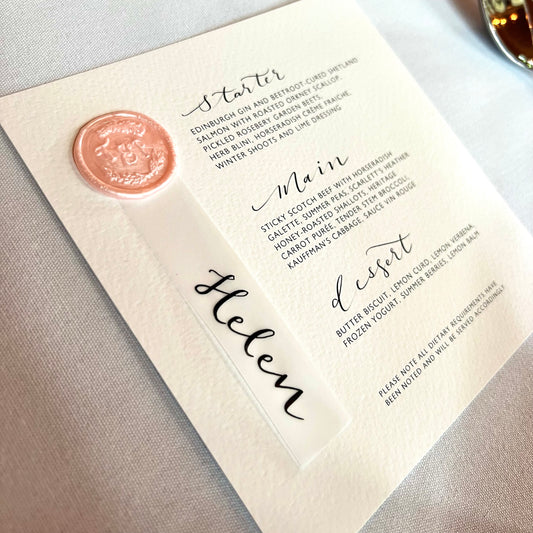 Starter
EDINBURGH GIN AND BEETROOT-CURED SHETLAND
SALMON WITH ROASTED ORKNEY SCALLOP,
PICKLED ROSEBERY GARDEN BEETS,
HERB BLINI, HORSERADISH CRÈME FRAICHE,
WINTER SHOOTS AND LIME DRESSING
Main
STICKY SCOTCH BEEF WITH HORSERADISH
GALETTE, SUMMER PEAS, SCARLETT'S HEATHER
HONEY-ROASTED SHALLOTS, HERITAGE
CARROT PURÉE, TENDER STEM BROCCOLI,
KAUFFMAN'S CABBAGE, SAUCE VIN ROUGE
dessert
BUTTER BISCUIT, LEMON CURD, LEMON VERBENA,
FROZEN YOGURT, SUMMER BERRIES, LEMON BALM
PLEASE NOTE ALL DIETARY REQUIREMENTS HAVE
BEEN NOTED AND WILL BE SERVED ACCORDINGLY.
Helen